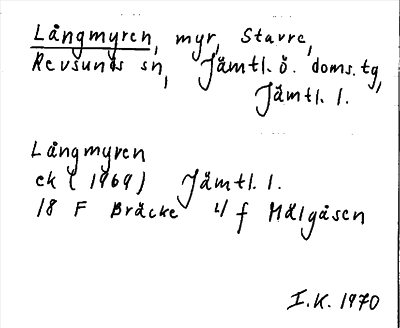 Långmyren, myr, Stavre,
Revsunds sn, Jämtl. ö. doms. tg,
Jämtl. l.
Långmyren
ek (1969) Jämtl. l.
18 F Bräcke 4 f Mälgåsen
I.K. 1970